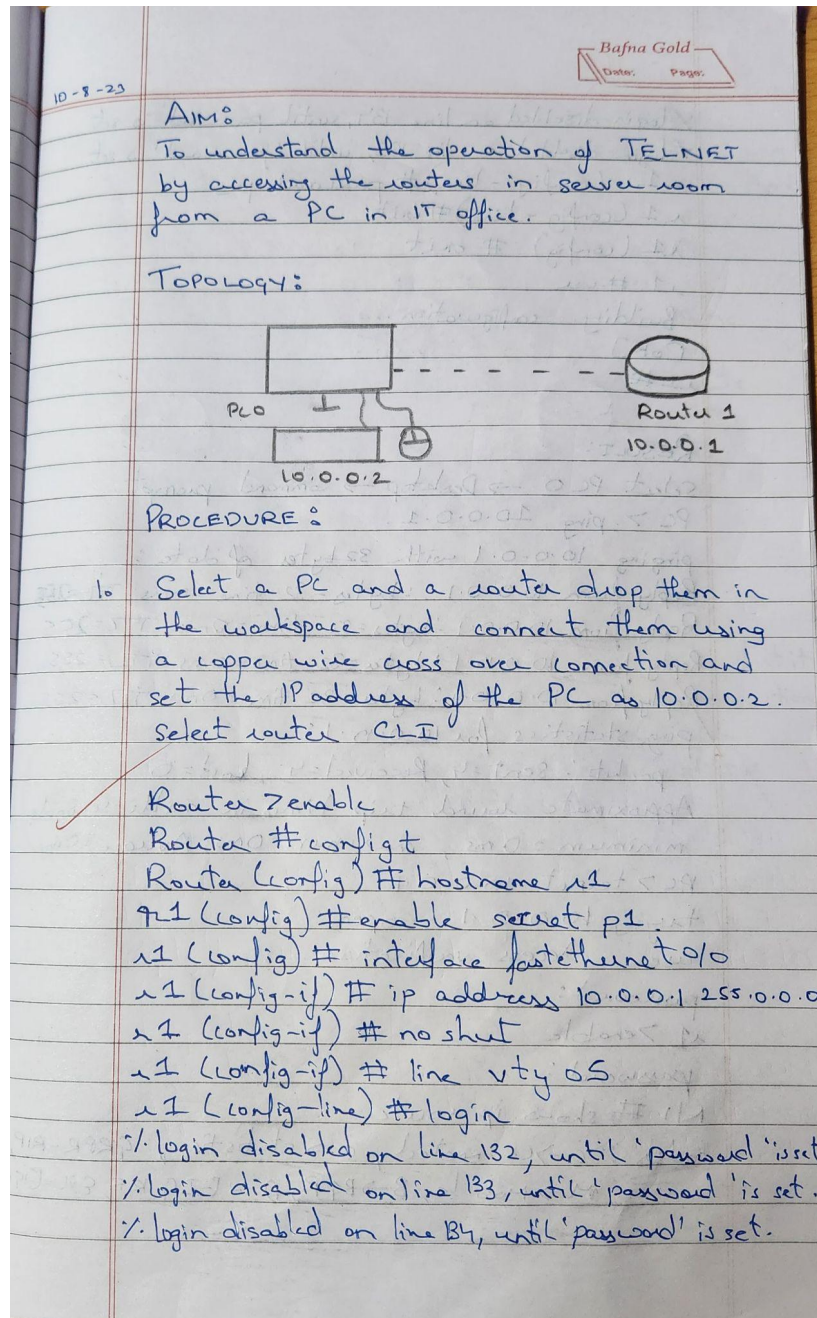 Bafna Gold
Date: Page:
10-8-23
AIM:
To understand the operation of TELNET
by accessing the routers in server room
from a PC in IT office.
TOPOLOGY:
PC0
Router 1
10.0.0.1
10.0.0.2
PROCEDURE:
1. Select a PC and a router drop them in
the workspace and connect them using
a copper wire cross over connection and
set the IP address of the PC as 10.0.0.2.
Select router CLI
Router >enable
Router # config t
Router (config) # hostname r1
r1 (config) # enable secret p1.
r1 (config) # interface fastethernet 0/0
r1 (config-if) # ip address 10.0.0.1 255.0.0.0
r1 (config-if) # no shut
r1 (config-if) # line vty 05
r1 (config-line) # login
% login disabled on line 132, until 'password' is set
% login disabled on line 133, until 'password' is set.
% login disabled on line 134, until 'password' is set.